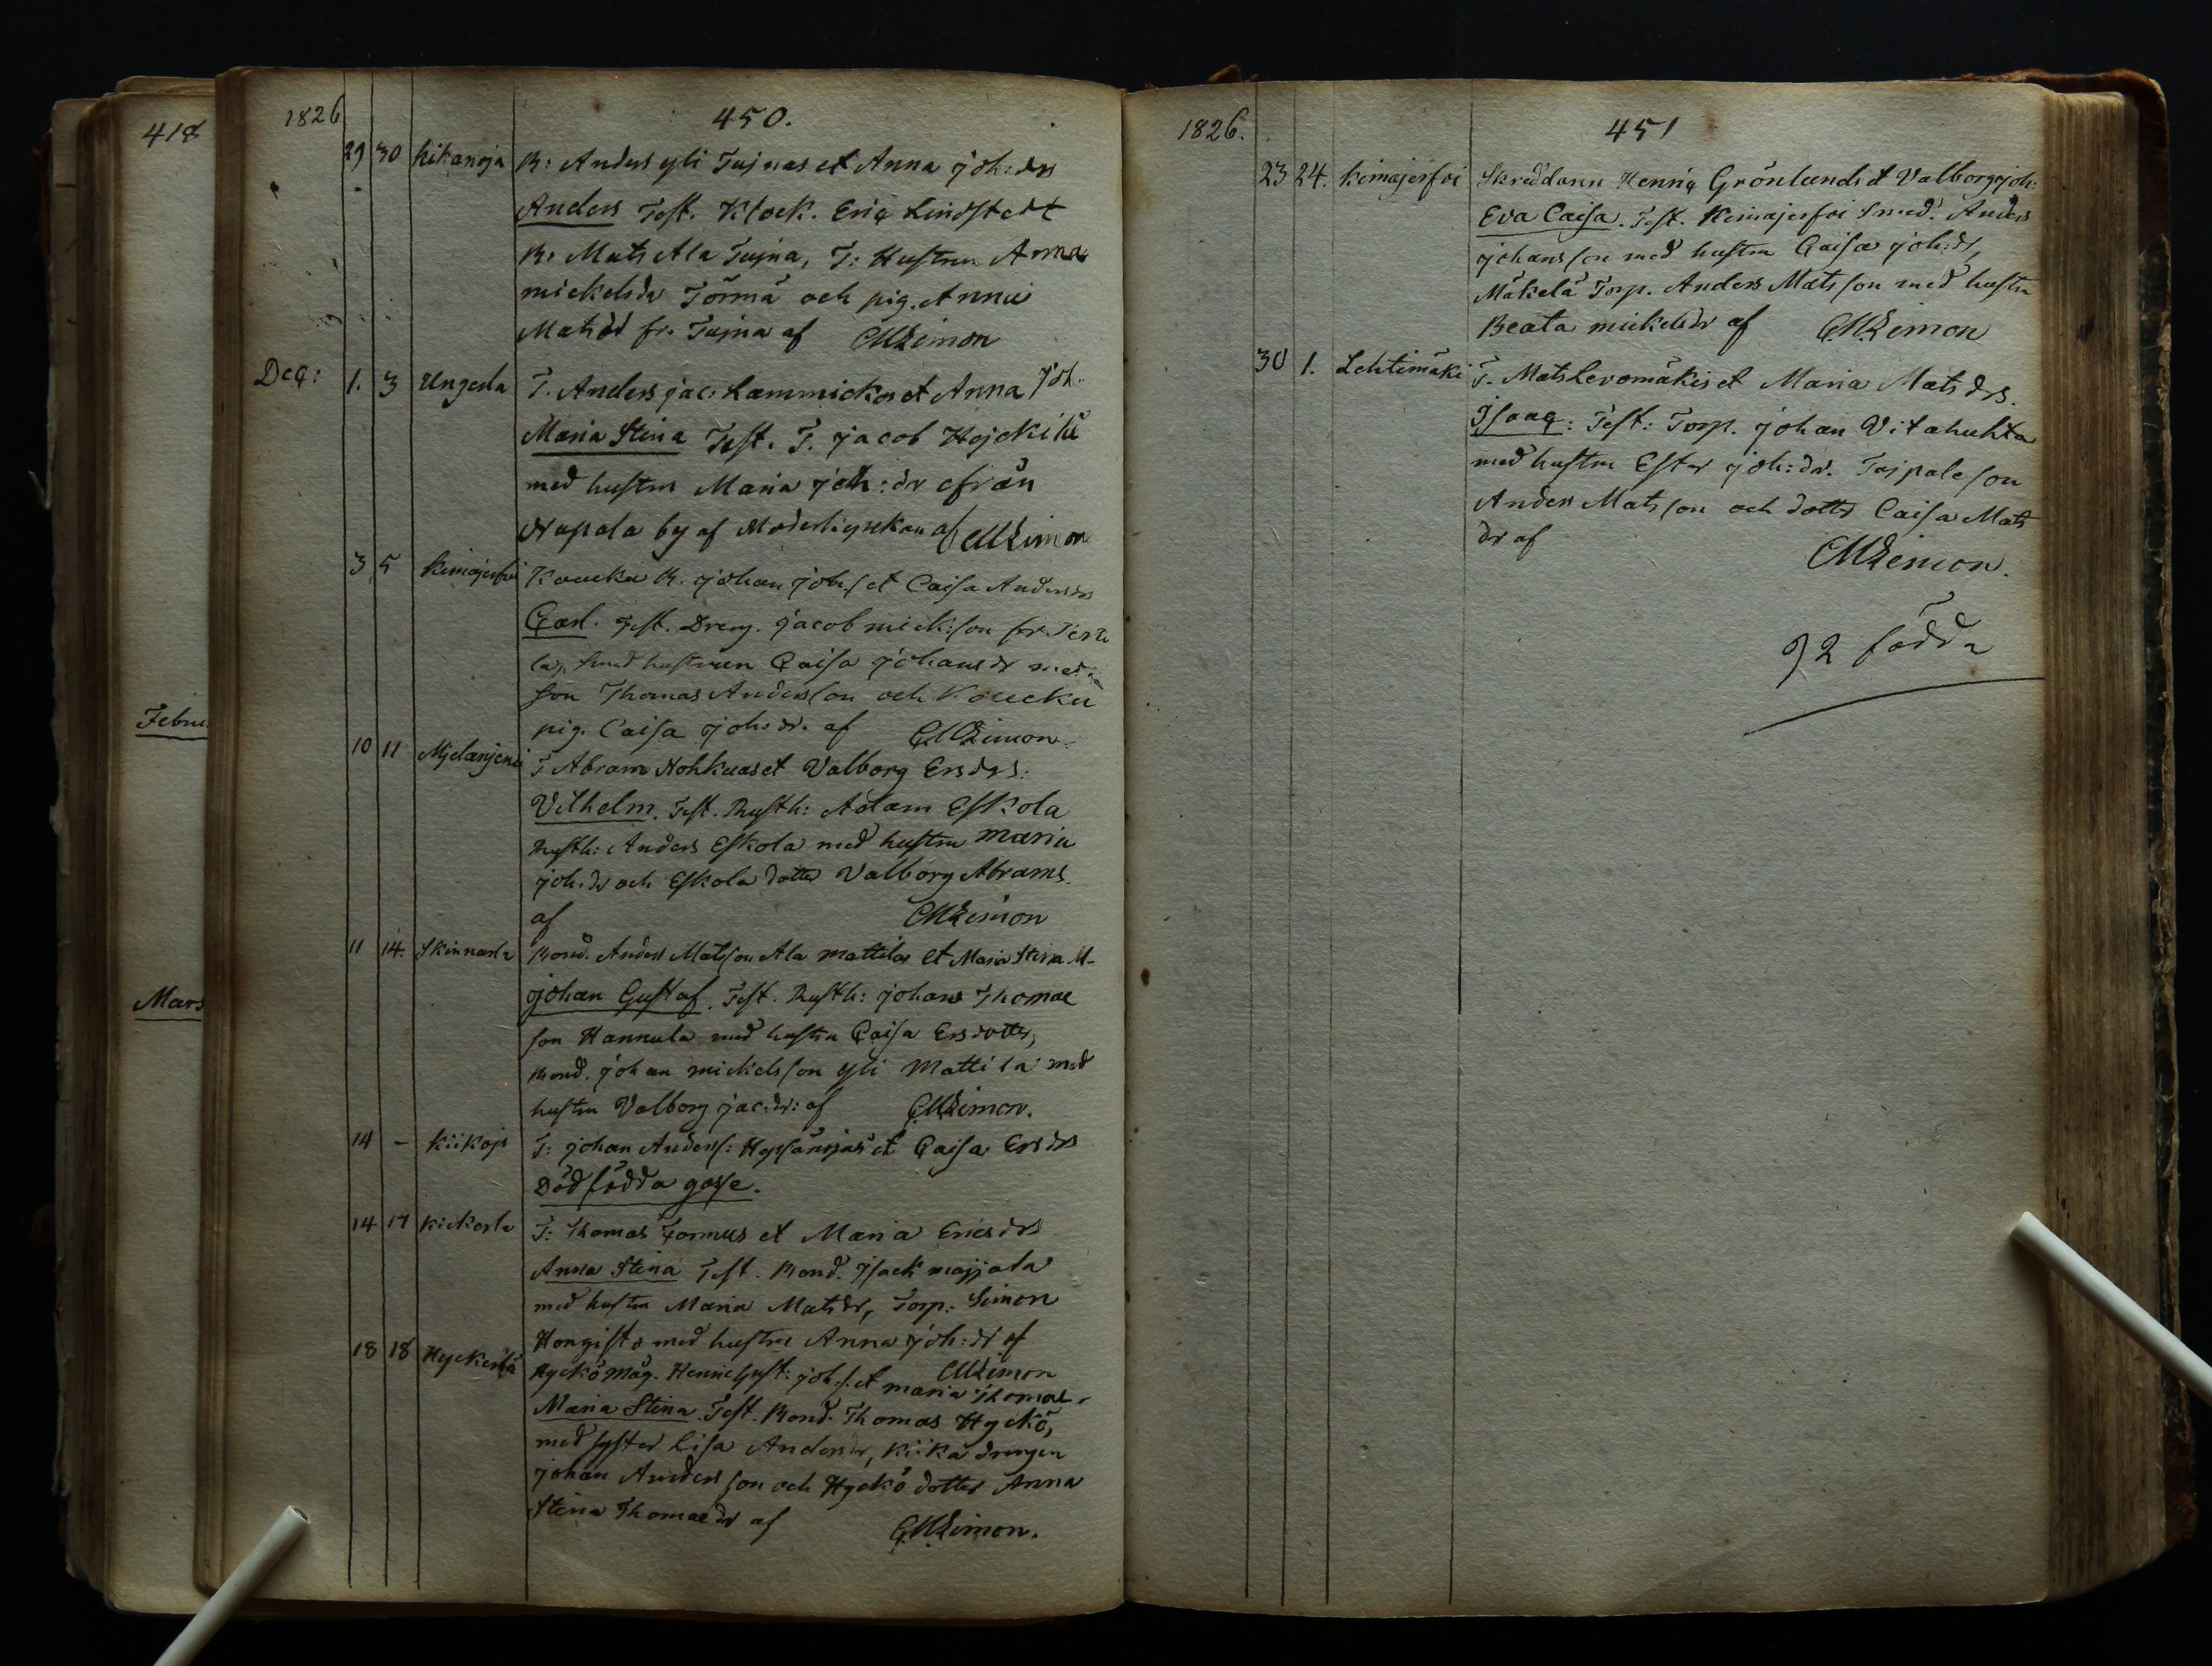 418
Febru
Mars
1826
450.
29 30 Kikanoja B: Anders yli Tujnas et Anna joh:drs
Anders Test. Klock. Eriq Lindstedt
B: Mats Ala Tujna, T: Hustrun Anna
mickelsdr Törmä och pig. Anna
Matsdr fr. Tujna af CMLimon
Deq: 1. 3 Ungerla T. Anders jac: Lammickos et Anna Joh.
Maria Stina Test. T. jacob Hejckilä
med hustru Maria joh:dr ifrån
Hapala by af Moderkyrckan af CMLimon
3 5 Kimajerfvi Koucku B. johan johs. et Caisa Andersdrs
Carl. Test. Dreng. jacob mick:son fr.
hustrun Caisa johansdr
son Thomas Andersson och Koucku
pig. Caisa joh:dr. af CMLimon
10 11 T Abram Hohkuas et Valborg Ersdrs:
Vilhelm. Test. Rusth: Adam Eskola
Rusth: Anders Eskola med hustru Maria
joh:dr och Eskola dotter Valborg Abrams.
af CMLimon
11 14. Skinnarla Bond. Anders Matsson Ala Mattilas et Maria Stina M-
johan Gustaf. Test. Rusth: johans Thomae
son Hannula med hustru Caisa Ersdotter,
Bond. johan mickelsson yli Mattila med
hustru Valborg jac:dr: af CMLimon.
14 - Kiikojs T: johan Anders: et Caisa Ersdrs
Dödfödda gosse.
14 17 Kickerla T: Thomas Formus et Maria Ericsdrs
Anna Stina Test. Bond. Isack majjala
med hustru Maria Matsdr, Torp: Simon
Hongisto med hustru Anna joh:dr af
CMLimon
18 18 Hyckerlä Hyckö Måg. Henric Gust: joh.s. et maria Thomae.
Maria Stina. Test. Bond. Thomas Hyckö,
med syster Lisa Andersdr, Kiika drengen
johan Andersson och Hyckö dotter Anna
Stina Thomaedr af CMLimon.
1826.
451
23 24. Kimajerfvi Skreddaren Henriq Grönlunds et Valborg joh:
Eva Caisa. Test. Kimajerfvi Smed. Anders
johansson med hustru Caisa joh:dr,
Mäkelä Torp. Anders Matsson med hustru
Beata mickelsdr af CMLimon
30 1. Lehtimäki T. Mats Levomäkis et Maria Matsdrs.
Isaaq: Test: Torp. johan Vitahuhta
med hustru Ester joh:dr. Tojpale son
Anders Matsson och dotter Caisa Mats
dr af
CMLimon.
92 födda